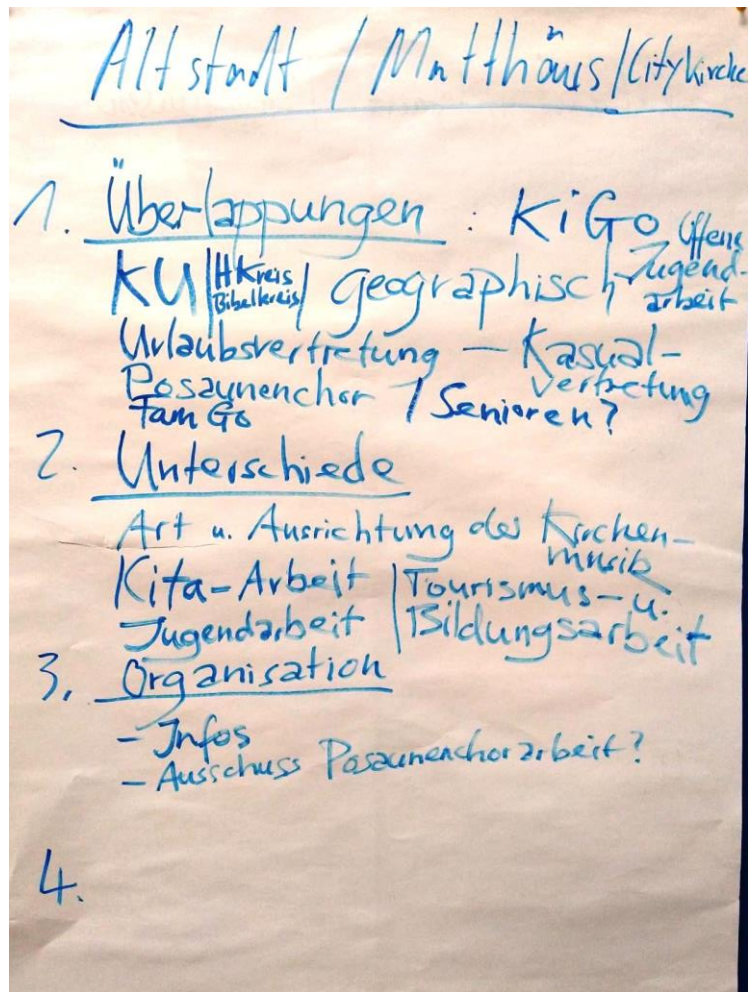 Altstadt / Matthäus / CityKirche
1. Überlappungen : KiGo Offene
KU | HKreis Bibelkreis | geographisch Jugend-
arbeit
Urlaubsvertretung – Kasual-
vertretung
Posaunenchor / Senioren?
Fam Go
2. Unterschiede
Art u. Ausrichtung der Kirchen-
musik
Kita-Arbeit | Tourismus- u.
Jugendarbeit | Bildungsarbeit
3. Organisation
- Infos
- Ausschuss Posaunenchorarbeit?
4.